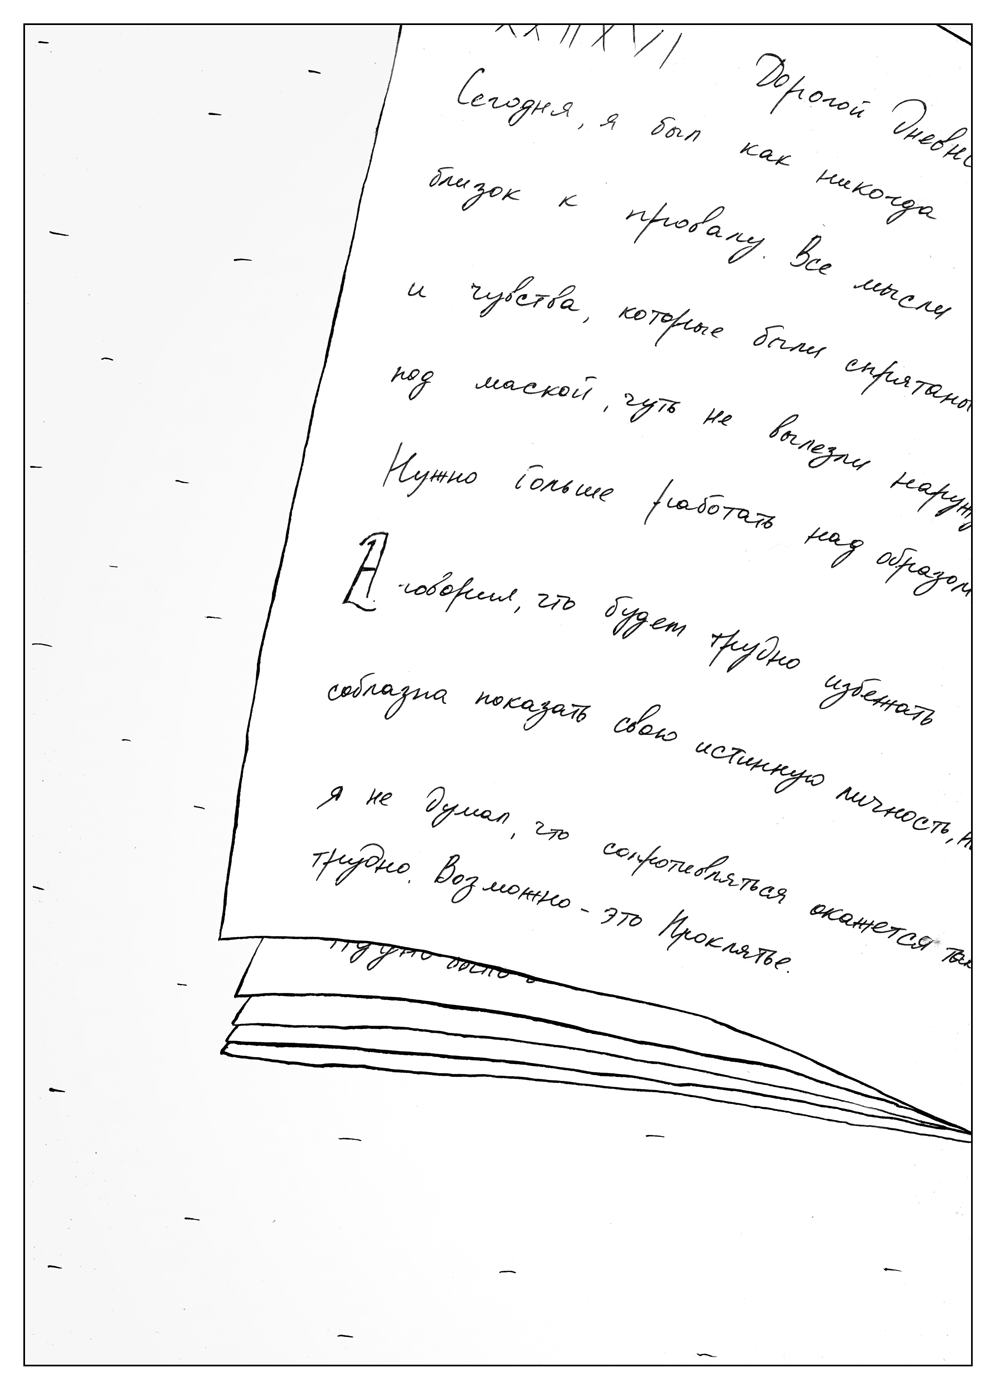 Дорогой Дневн
Сегодня, я был как никогда
близок к провалу. Все мысли
и чувства, которые были спрятаны
под маской, чуть не вылезли наруж
Нужно больше работать над образом
А говорил, что будет трудно избежать
соблазна показать свою истинную личность, н
я не думал, что сопротивляться окажется так
трудно. Возможно - это Проклятье.